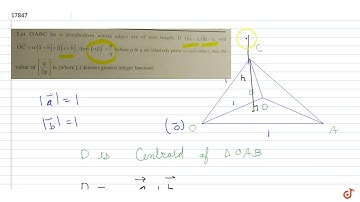 17847
Let OABC be a tetrahedron whose edges are of unit length. If OA = a, OB = b, and
OC = α(a + b) + β(a × b), then (αβ)² = p/q where p & q are relatively prime to each other, then the
value of [q/2p] is (where [.] denotes greatest integer function)
|a⃗| = 1
|b⃗| = 1
C
h
1
1
D
(0⃗) O
1
A
D is Centroid of Δ OAB